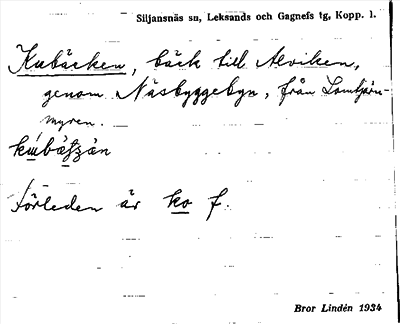 Siljansnäs sn, Leksands och Gagnefs tg, Kopp. l.
Kubäcken, bäck till Alviken,
genom Näsbyggebyn, från Lomtjärn-
myren.
Förleden är ko f.
Bror Lindén 1934